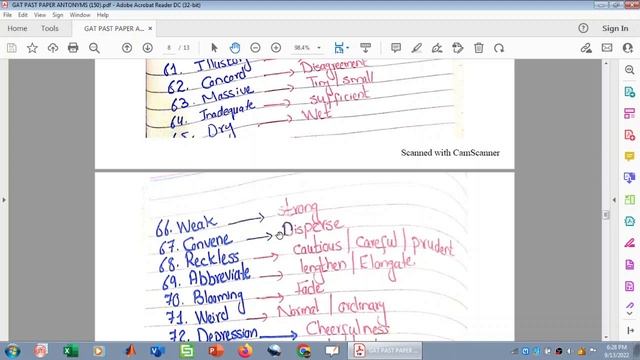 GAT PAST PAPER ANTONYMS (150).pdf - Adobe Acrobat Reader DC (32-bit)
File Edit View Sign Window Help
Home Tools GAT PAST PAPER A... × Sign In
8 / 13 98.4%
61. Illusory
62. Concord → Disagreement
63. Massive → Tiny / small
64. Inadequate → sufficient
65. Dry → Wet
Scanned with CamScanner
66. Weak → strong
67. Convene → Disperse
68. Reckless → cautious / careful / prudent
69. Abbreviate → lengthen / Elongate
70. Blooming → fade
71. Weird → Normal / ordinary
72. Depression → Cheerfulness
GAT PAST PAPER ...
6:28 PM